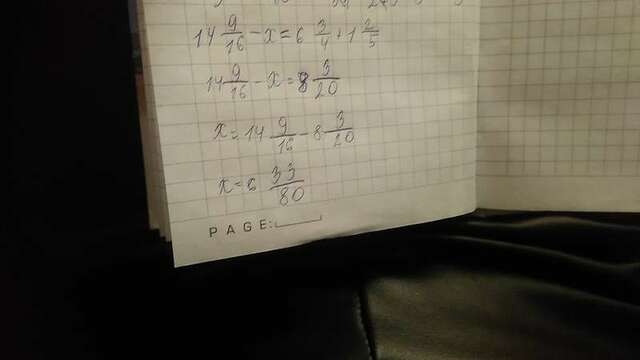 14 9/16 - x = 6 3/4 + 1 2/5
14 9/16 - x = 8 3/20
x = 14 9/16 - 8 3/20
x = 6 33/80
PAGE: